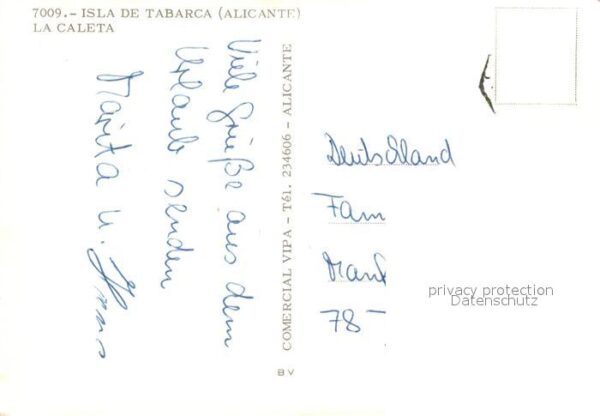 7009.- ISLA DE TABARCA (ALICANTE)
LA CALETA
Viele Grüße aus dem
Urlaub senden
Marita u. Hans
COMERCIAL VIPA - Tél. 234606 - ALICANTE
BV
Deutschland
Fam
78
privacy protection
Datenschutz